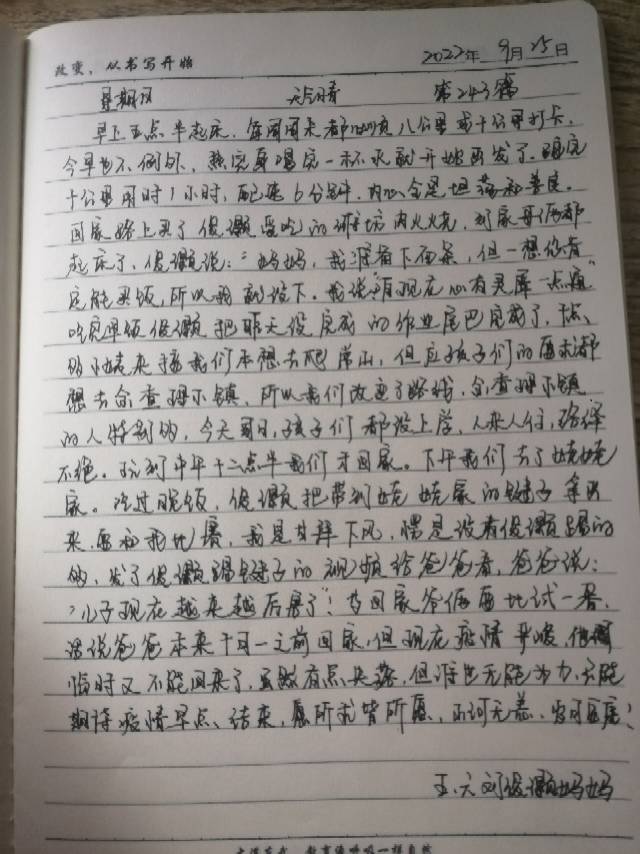 改变,从书写开始
2022年 9月 25日
星期日 天气晴 第243篇
早上五点半起床,每周周末都八公里或十公里打卡,
今早也不例外,热完身喝完一杯水就开始出发了。跑完
十公里用时1小时,配速6分钟,内心全是坦荡和善良。
回家路上买了俊灏爱吃的肉火烧,到家哥俩都
起床了,俊灏说:"妈妈,我准备下面条,但一想你肯
定能买饭,所以我就没下。我说:咱现在心有灵犀一点通"
吃完早饭俊灏把昨天没完成的作业尾巴完成了,
姥来接我们本想去爬山,但应孩子们的要求都
想去小镇,所以我们改变了路线,小镇
的人特别的,今天周日,孩子们都没上学,人来人往,络绎
不绝。玩到中午十二点半我们才回家。下午我们去了姥姥
家。吃过晚饭,俊灏把带到姥姥家的毽子拿出
来,要和我比赛,我是甘拜下风,愣是没有俊灏踢的
多,发了俊灏踢毽子的视频给爸爸看,爸爸说:
"儿子现在越来越厉害了"!等回家爷俩要比试一番,
话说爸爸本来十一之前回家,但现在疫情严峻,
临时又不能回来了,虽然有点失落,但谁也无能为力,只能
期待疫情早点结束,愿所求皆所愿,山河无恙,
刘俊灏妈妈